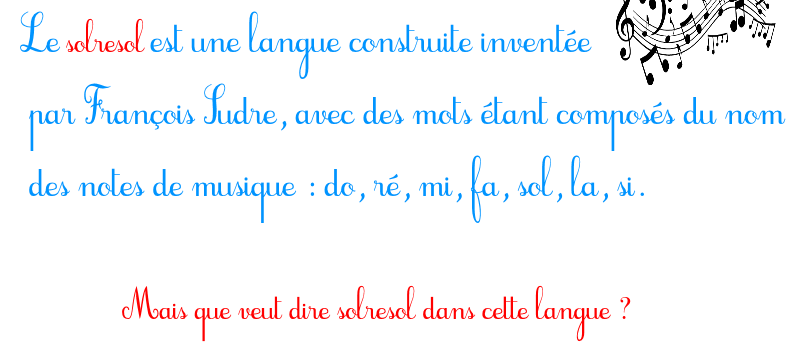 Le solresol est une langue construite inventée
par François Sudre, avec des mots étant composés du nom
des notes de musique : do, ré, mi, fa, sol, la, si.
Mais que veut dire solresol dans cette langue ?